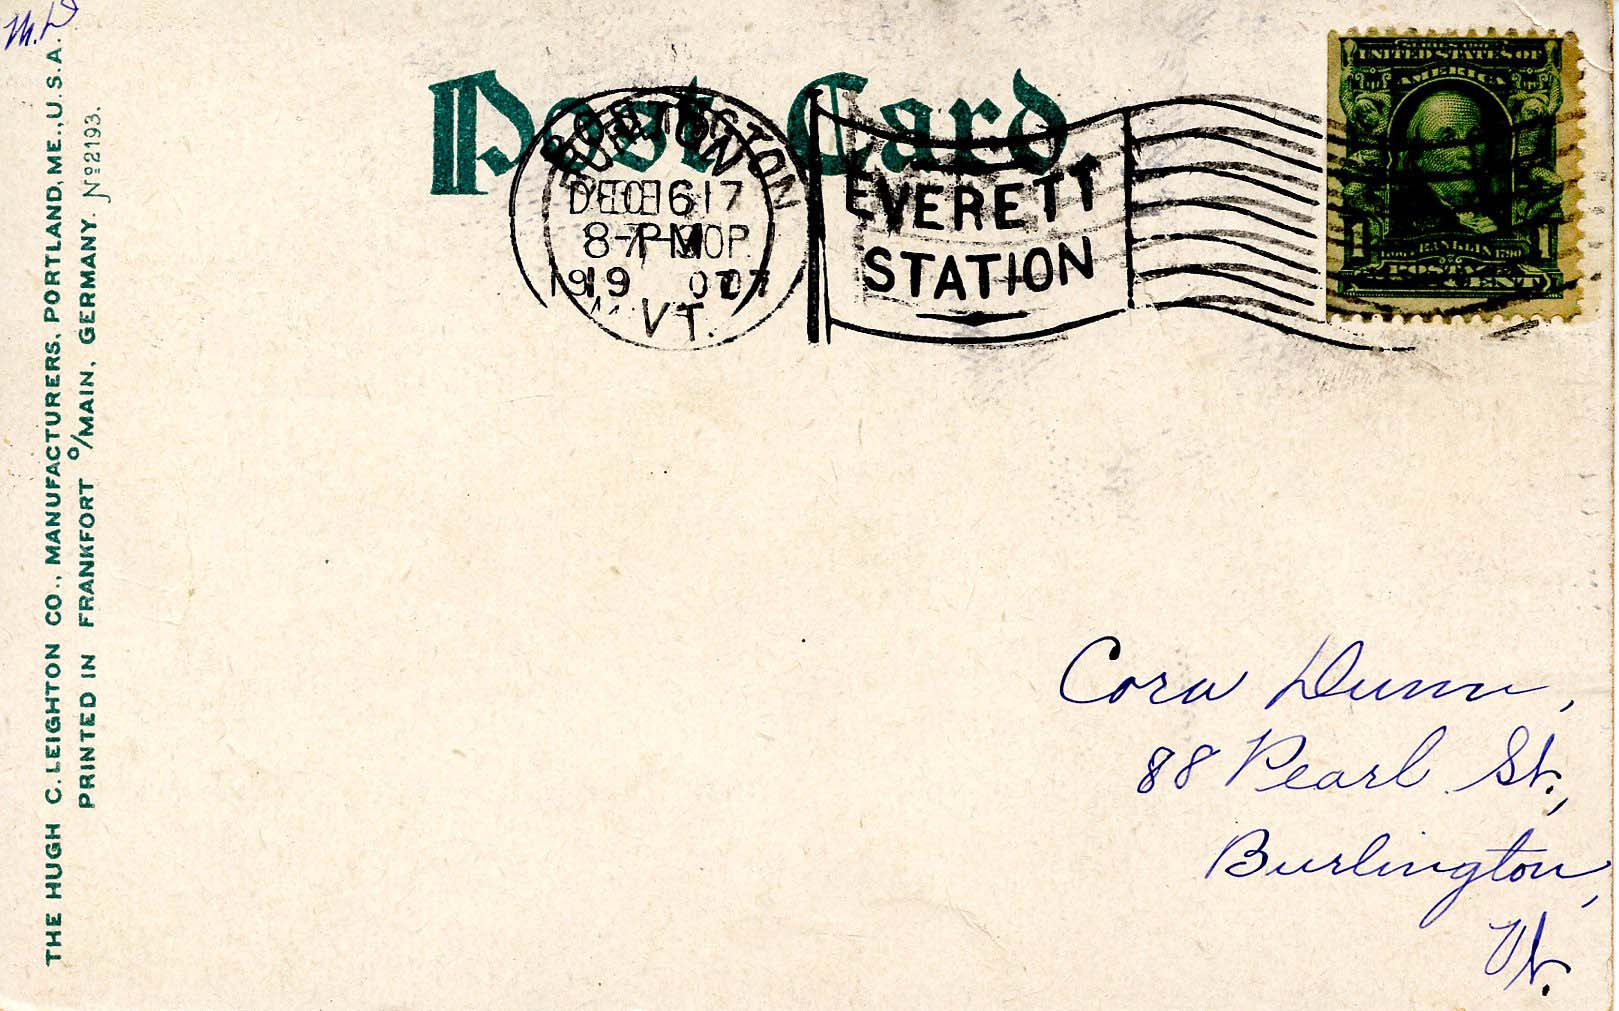 M.D
Post Card.
BOSTON
BURLINGTON
1907
VT.
EVERETT
STATION
SERIES 1902
UNITED STATES OF
AMERICA
1 FRANKLIN 1
1706 1790
POSTAGE
ONE CENT
THE HUGH C. LEIGHTON CO., MANUFACTURERS, PORTLAND, ME., U.S.A.
PRINTED IN FRANKFORT o/MAIN, GERMANY. No 2193.
Cora Dunn,
88 Pearl St.,
Burlington,
Vt.